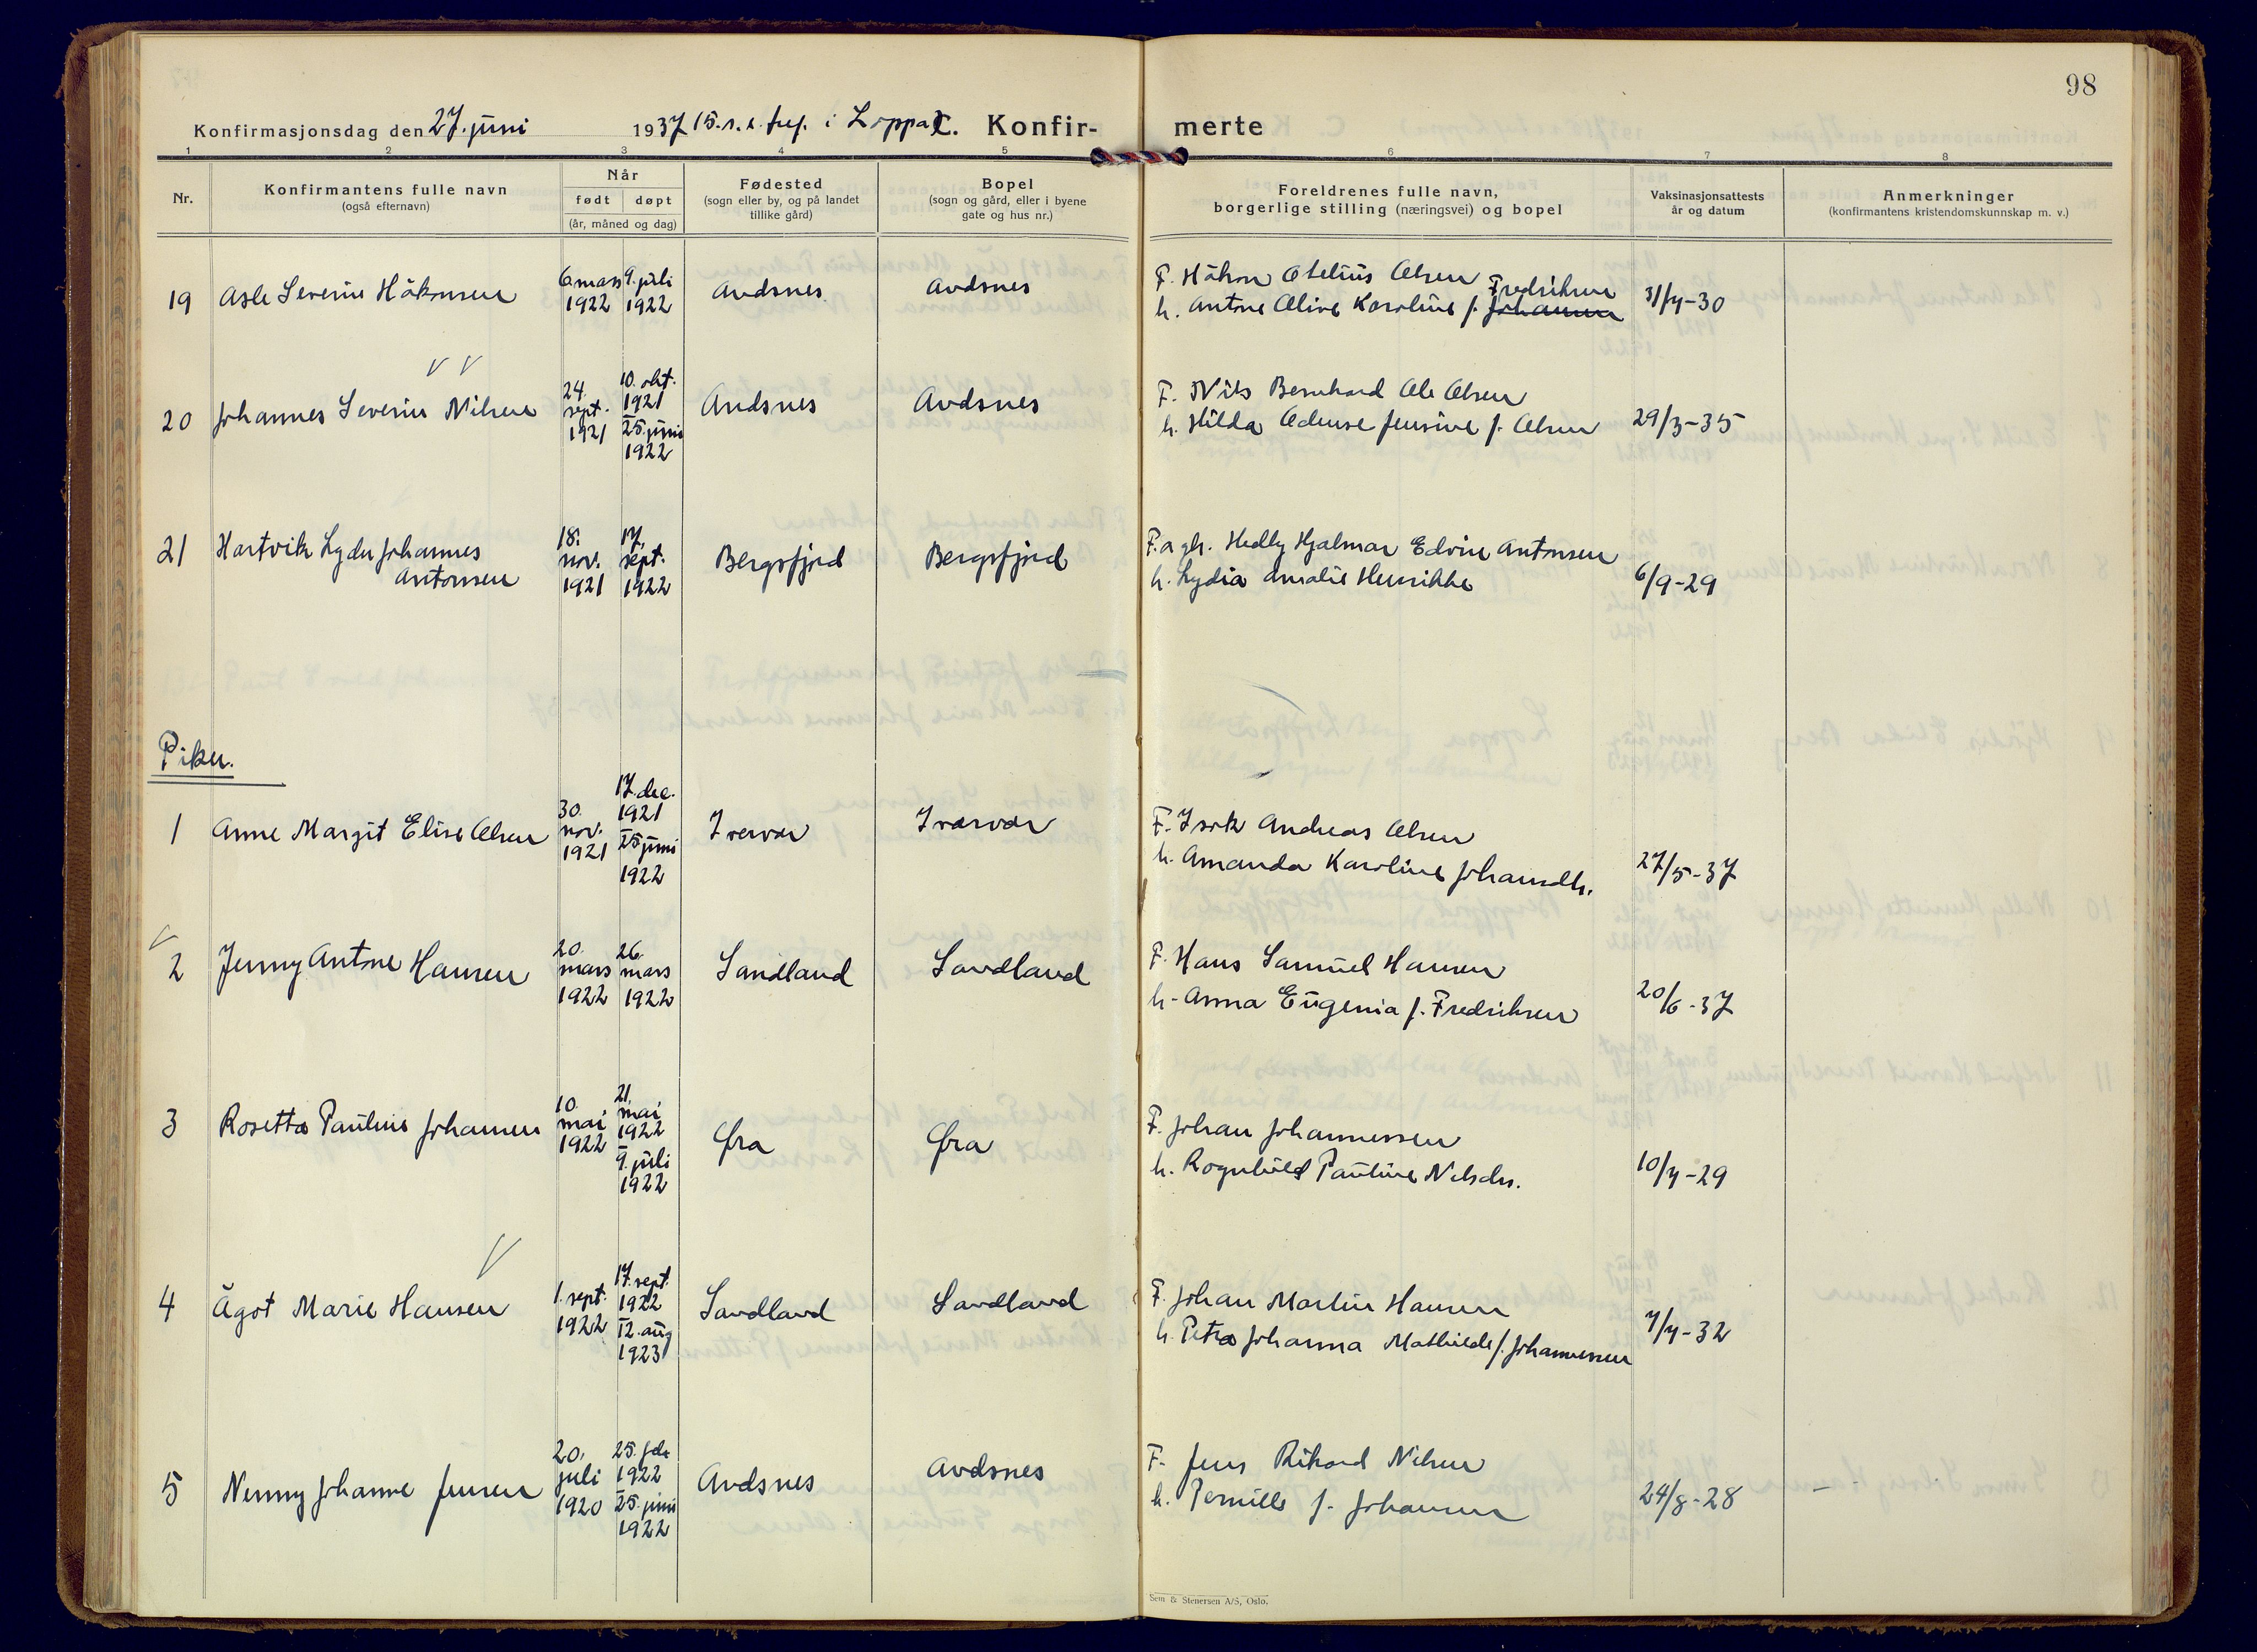 98
Konfirmasjonsdag den 27. juni 1937 (5. s. e. tref. i Loppa) C. Konfir- merte
1 2 3 4 5 6 7 8
Nr.
Konfirmantens fulle navn
(også efternavn)
Når
født døpt
(år, måned og dag)
Fødested
(sogn eller by, og på landet
tillike gård)
Bopel
(sogn og gård, eller i byene
gate og hus nr.)
Foreldrenes fulle navn,
borgerlige stilling (næringsvei) og bopel
Vaksinasjonsattests
år og datum
Anmerkninger
(konfirmantens kristendomskunnskap m. v.)
19 Asle Severin Håkonsen
6 mars
1922
9. juli
1922
Andsnes
Andsnes
F. Håkon Otelius Olsen
h. Antone Olive Karoline f. Johansen Fredriksen
31/4-30
20 Johannes Severin Nilsen
24.
sept.
1921
10. okt.
1921
25. juni
1922
Andsnes
Andsnes
F. Nils Bernhard Ole Olsen
h. Hilda Odense Jensine f. Olsen
29/3-35
21 Hartvik Lyder Johannes
Antonsen
18.
nov.
1921
17.
sept.
1922
Bergsfjord
Bergsfjord
F. Hedly Hjalmar Edvin Antonsen
h. Lydia Amalie Henrikke
6/9-29
Piker.
1 Anne Margit Elise Olsen
30.
nov.
1921
17. dec.
1921
25 juni
1922
Iversvær
Ivarvær
F. Isak Andreas Olsen
h. Amanda Karoline Johansdtr.
27/5-37
2 Jenny Antone Hansen
20.
mars
1922
26.
mars
1922
Sandland
Sandland
F. Hans Samuel Hansen
h. Anna Eugenia f. Fredriksen
20/6-37
3 Rosetta Pauline Johansen
10.
mai
1922
21.
mai
1922
9. juli
1922
Øra
Øra
F. Johan Johannessen
h. Rognhild Pauline Nilsdtr.
10/4-29
4 Ågot Marie Hansen
1. sept.
1922
17. sept.
1922
12. aug
1923
Sandland
Sandland
F. Johan Martin Hansen
h. Petra Johanna Mathilde f. Johannessen
4/4-32
5 Nenny Johanne Jensen
20.
juli
1920
25. feb.
1922
25. juni
1922
Andsnes
Andsnes
F. Jens Rikard Nilsen
h. Pernille f. Johansen
24/8-28
Sem & Stenersen A/S, Oslo.